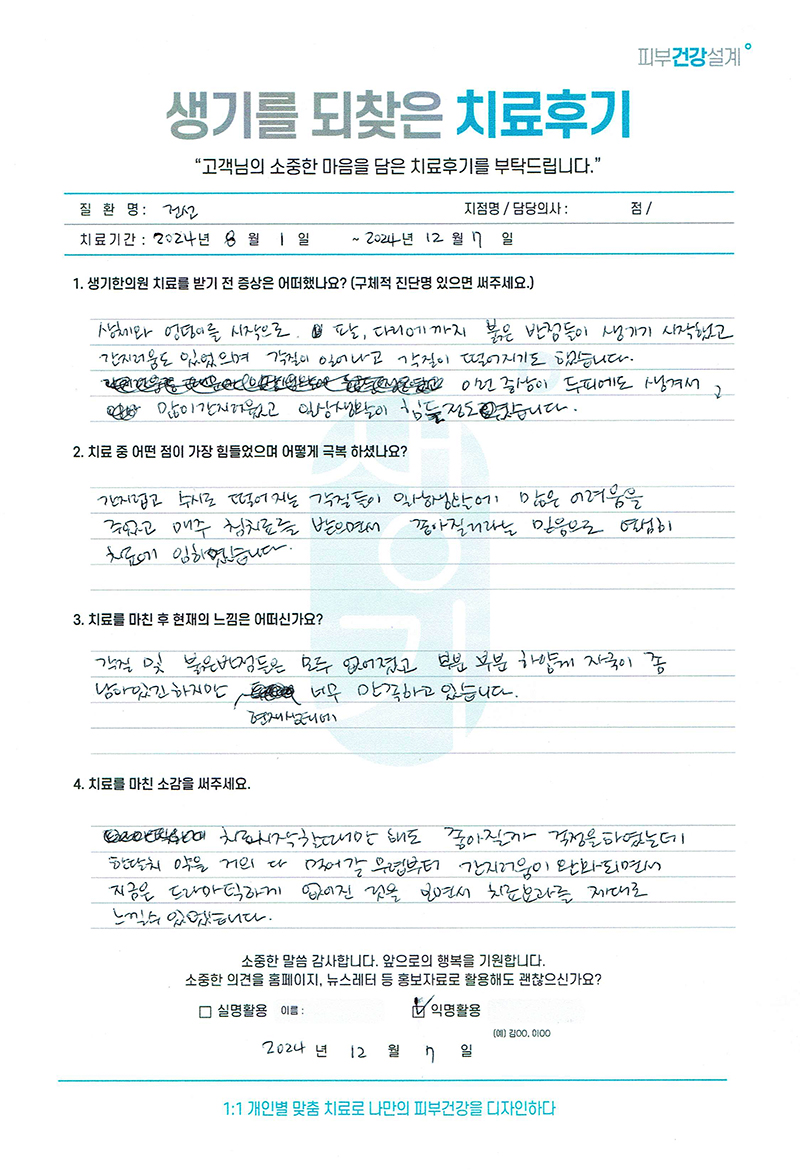 피부건강설계
생기를 되찾은 치료후기
“고객님의 소중한 마음을 담은 치료후기를 부탁드립니다.”
질 환 명 : 건선 지점명 / 담당의사 : 점 /
치료기간 : 2024년 8 월 1 일 ~ 2024년 12 월 7 일
1. 생기한의원 치료를 받기 전 증상은 어떠했나요? (구체적 진단명 있으면 써주세요.)
생체와 엉덩이를 시작으로 팔, 다리에까지 붉은 반점들이 생기기 시작했고
간지러움도 있었으며 각질이 일어나고 각질이 떨어지기도 했습니다.
이런 증상이 두피에도 생겨서
많이 간지러웠고 일상생활이 힘들 정도였습니다.
2. 치료 중 어떤 점이 가장 힘들었으며 어떻게 극복 하셨나요?
간지럽고 수시로 떨어지는 각질들이 일상생활에 많은 어려움을
주었고 매주 침치료를 받으면서 좋아질거라는 믿음으로 열심히
치료에 임하였습니다.
3. 치료를 마친 후 현재의 느낌은 어떠신가요?
각질 및 붉은반점들은 모두 없어졌고 부분 부분 하얗게 자국이 좀
남아있긴하지만 너무 만족하고 있습니다.
현재상태에
4. 치료를 마친 소감을 써주세요.
치료시작할때만 해도 좋아질까 걱정을 하였는데
한달치 약을 거의 다 먹어갈 무렵부터 간지러움이 완화되면서
지금은 드라마틱하게 없어진 것을 보면서 치료효과를 제대로
느낄수 있었습니다.
소중한 말씀 감사합니다. 앞으로의 행복을 기원합니다.
소중한 의견을 홈페이지, 뉴스레터 등 홍보자료로 활용해도 괜찮으신가요?
실명활용 이름 : 익명활용
(예) 김OO, 이OO
2024 년 12 월 7 일
1:1 개인별 맞춤 치료로 나만의 피부건강을 디자인하다
생기